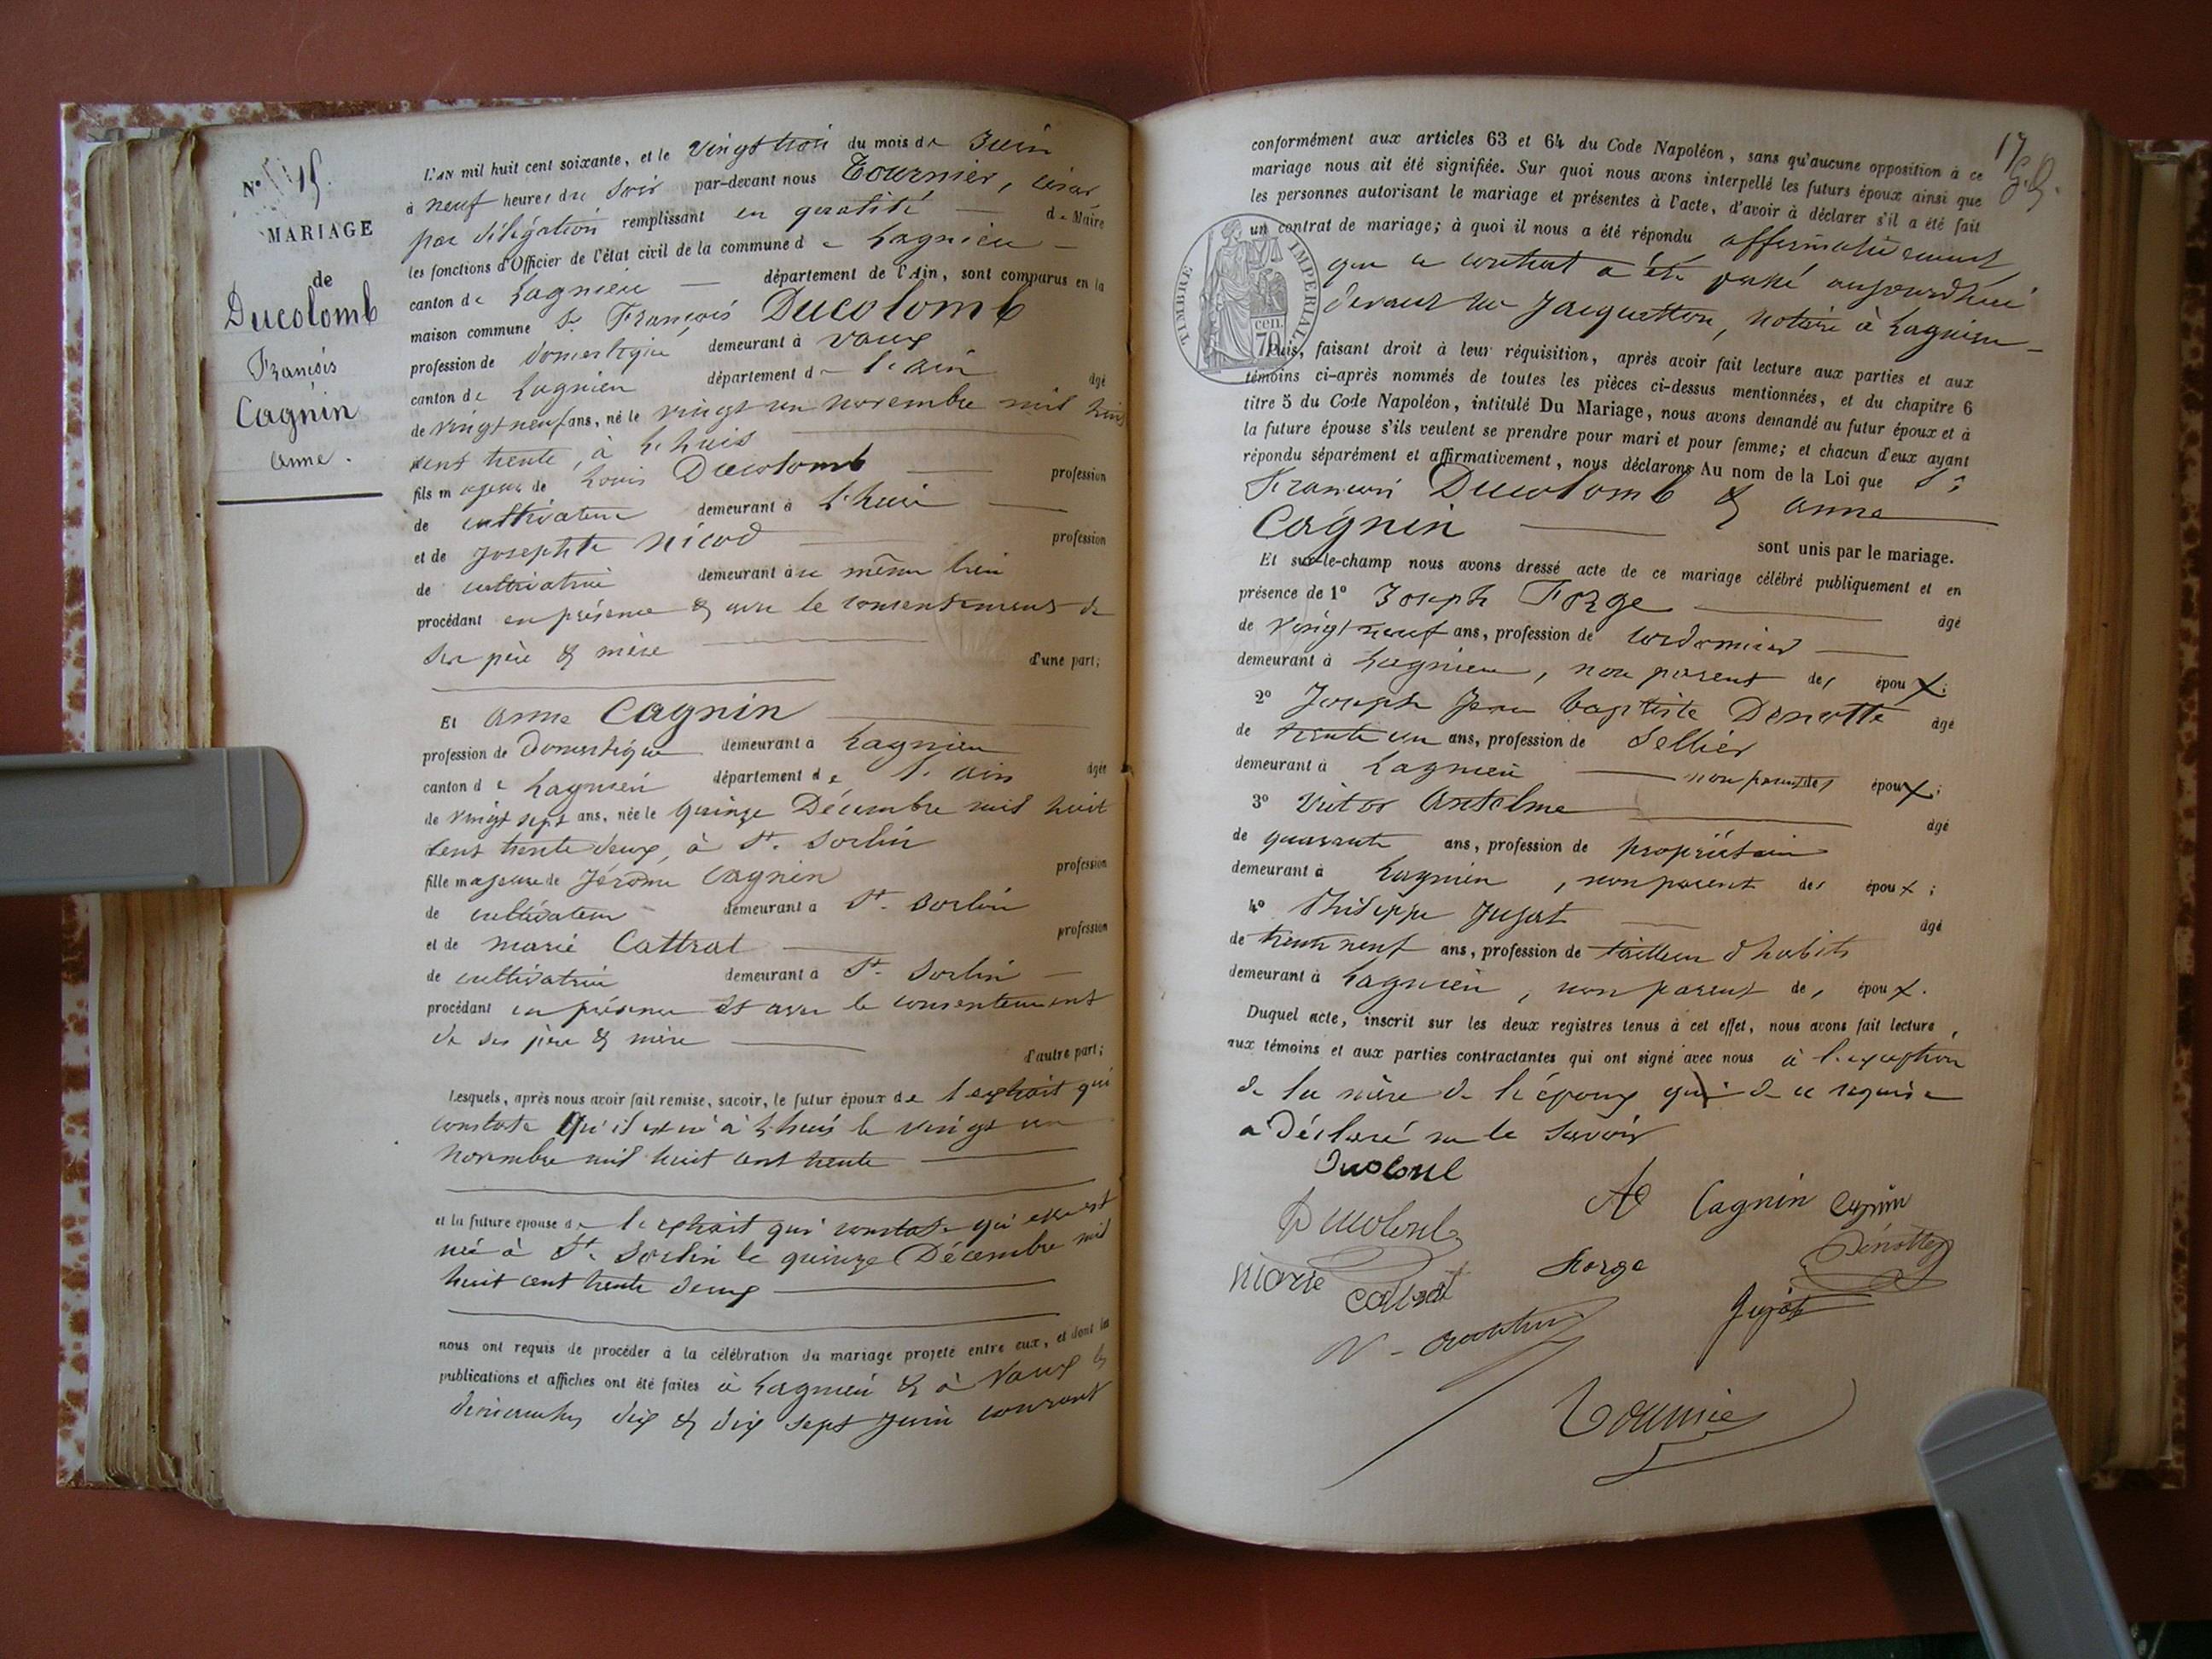 N° 15.
MARIAGE
de
Ducolomb
François
Cagnin
anne.
L'AN mil huit cent soixante, et le vingt trois du mois de Juin
à neuf heures du soir par-devant nous Tournier, César
par délégation remplissant en qualité de Maire
les fonctions d'Officier de l'état civil de la commune de Lagnieu
canton de Lagnieu département de l'Ain, sont comparus en la
maison commune Sr François Ducolomb
profession de domestique demeurant à Vaux
canton de Lagnieu département de l'ain âgé
de vingt neuf ans, né le vingt un novembre mil huit
cent trente, à Lhuis
fils majeur de Louis Ducolomb profession
de cultivateur demeurant à Lhuis
et de Josephte Nicod profession
de cultivatrice demeurant au même lieu
procédant en présence & avec le consentement de
ses père & mère d'une part;
Et anne Cagnin
profession de domestique demeurant à Lagnieu
canton de Lagnieu département de l'ain âgée
de vingt sept ans, née le quinze Décembre mil huit
cent trente deux, à St. Sorlin
fille majeure de Jérôme Cagnin profession
de cultivateur demeurant à St. Sorlin
et de marie Cattrat profession
de cultivatrice demeurant à St. Sorlin
procédant en présence et avec le consentement
de ses père & mère d'autre part;
Lesquels, après nous avoir fait remise, savoir, le futur époux de l'extrait qui
constate qu'il est né à Lhuis le vingt un
novembre mil huit cent trente
et la future épouse de l'extrait qui constate qu'elle est
née à St. Sorlin le quinze Décembre mil
huit cent trente deux
nous ont requis de procéder à la célébration du mariage projeté entre eux, et dont les
publications et affiches ont été faites à Lagnieu & à Vaux les
dimanches dix & dix sept Juin courant
17
conformément aux articles 63 et 64 du Code Napoléon, sans qu'aucune opposition à ce
mariage nous ait été signifiée. Sur quoi nous avons interpellé les futurs époux ainsi que
les personnes autorisant le mariage et présentes à l'acte, d'avoir à déclarer s'il a été fait
un contrat de mariage; à quoi il nous a été répondu affirmativement
que ce contrat a été passé aujourd'hui
devant Me Jacquetton, notaire à Lagnieu
TIMBRE IMPERIAL
70 cen.
Puis, faisant droit à leur réquisition, après avoir fait lecture aux parties et aux
témoins ci-après nommés de toutes les pièces ci-dessus mentionnées, et du chapitre 6
titre 5 du Code Napoléon, intitulé Du Mariage, nous avons demandé au futur époux et à
la future épouse s'ils veulent se prendre pour mari et pour femme; et chacun d'eux ayant
répondu séparément et affirmativement, nous déclarons Au nom de la Loi que Sr
François Ducolomb & anne
Cagnin
sont unis par le mariage.
Et sur-le-champ nous avons dressé acte de ce mariage célébré publiquement et en
présence de 1° Joseph Forge âgé
de vingt neuf ans, profession de cordonnier
demeurant à Lagnieu, non parent des époux;
2° Joseph Jean Baptiste Denotte âgé
de trente un ans, profession de Sellier
demeurant à Lagnieu non parent des époux;
3° Victor Antelme âgé
de quarante ans, profession de propriétaire
demeurant à Lagnieu, non parent des époux;
4° Philippe Jujat âgé
de trente neuf ans, profession de tailleur d'habits
demeurant à Lagnieu, non parent des époux.
Duquel acte, inscrit sur les deux registres tenus à cet effet, nous avons fait lecture,
aux témoins et aux parties contractantes qui ont signé avec nous à l'exception
de la mère de l'époux qui de ce requise
a déclaré ne le savoir
AC Cagnin Cagnin
Forge Denotte
marie Cattrat
Jujat
Tournier